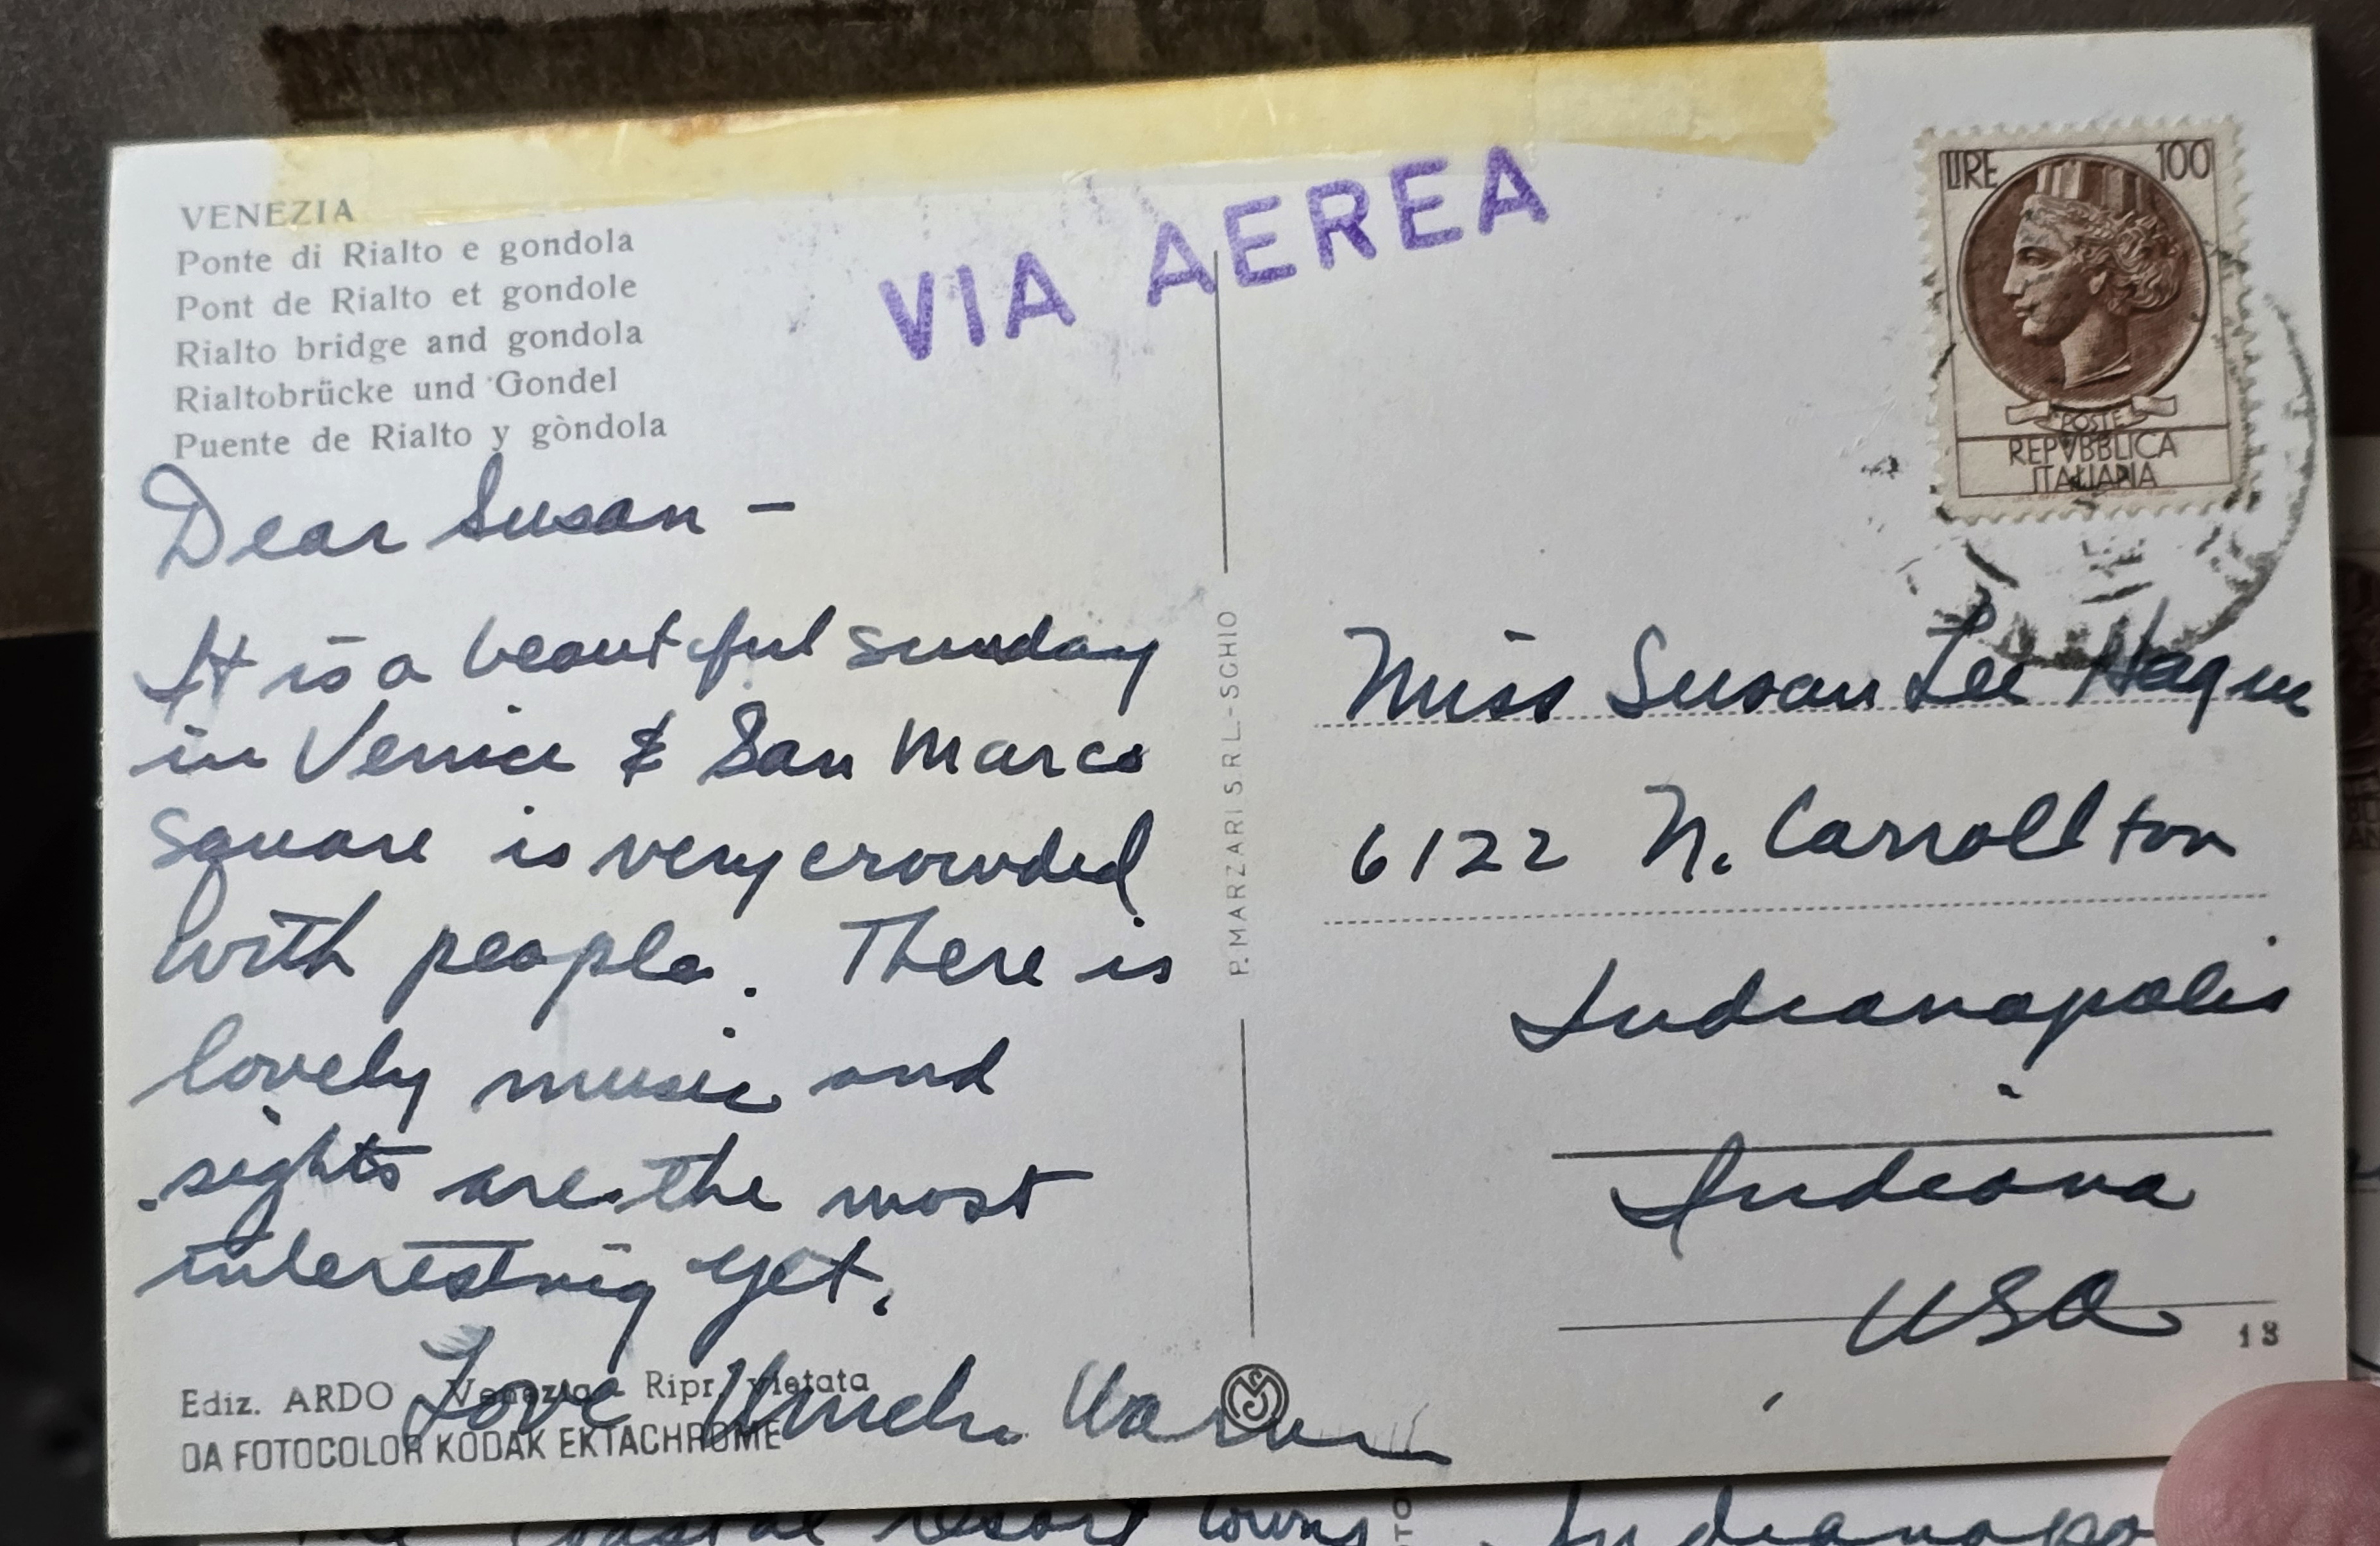 VENEZIA
Ponte di Rialto e gondola
Pont de Rialto et gondole
Rialto bridge and gondola
Rialtobrücke und Gondel
Puente de Rialto y gòndola
VIA AEREA
LIRE 100
POSTE
REPVBBLICA
ITALIANA
Dear Susan -
It is a beautiful sunday
in Venice & San Marco
Square is very crowded
with people. There is
lovely music and
sights are the most
interesting yet.
Love
Ediz. ARDO - Venezia - Ripr. vietata
DA FOTOCOLOR KODAK EKTACHROME
P. MARZARI S.R.L. - SCHIO
Miss Susan Lee Hague
6122 N. Carrollton
Indianapolis
Indiana
USA
13
coastal resort towns